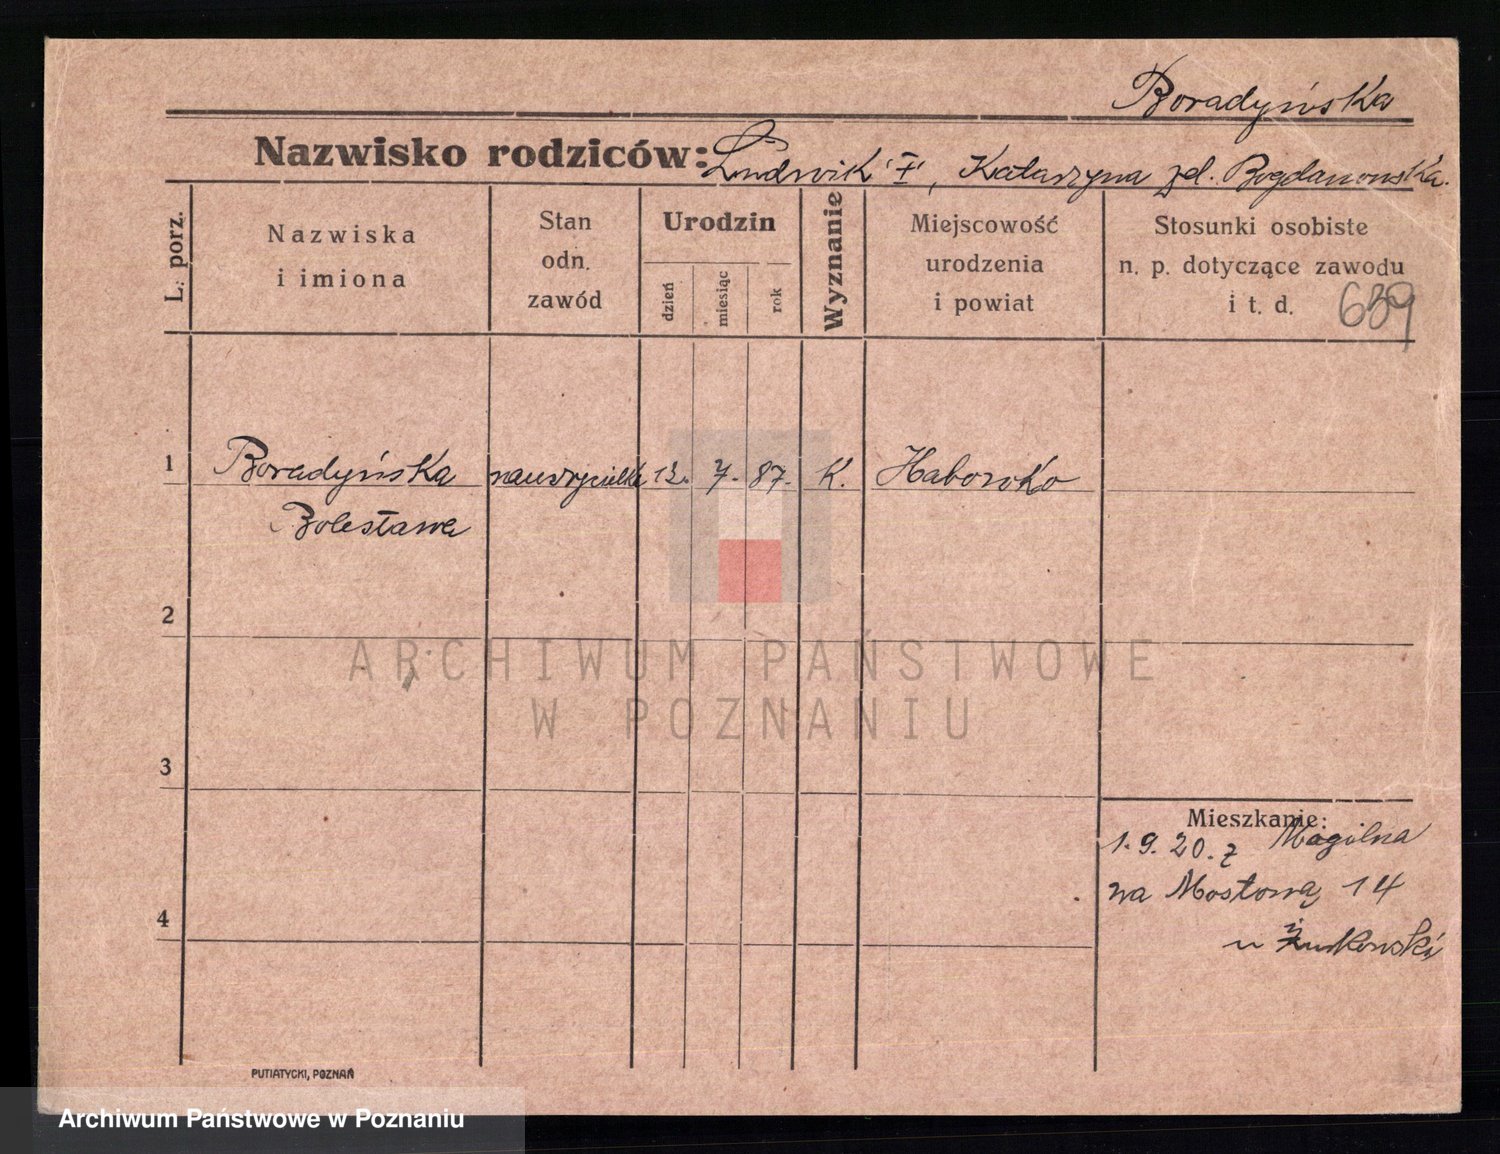 Boradyńska
Nazwisko rodziców: Ludwik "†", Katarzyna zd. Bogdanowska.
L. porz.
Nazwiska
i imiona
Stan
odn.
zawód
Urodzin
dzień
miesiąc
rok
Wyznanie
Miejscowość
urodzenia
i powiat
Stosunki osobiste
n. p. dotyczące zawodu
i t. d.
639
1 Boradyńska nauczycielka 12. 7. 87. K. Haborówko
Bolesława
2
3
4
Mieszkanie:
1.9.20. z Mogilna
na Mostową 14
u Żurkowski
PUTIATYCKI, POZNAŃ
ARCHIWUM PAŃSTWOWE
W POZNANIU
Archiwum Państwowe w Poznaniu